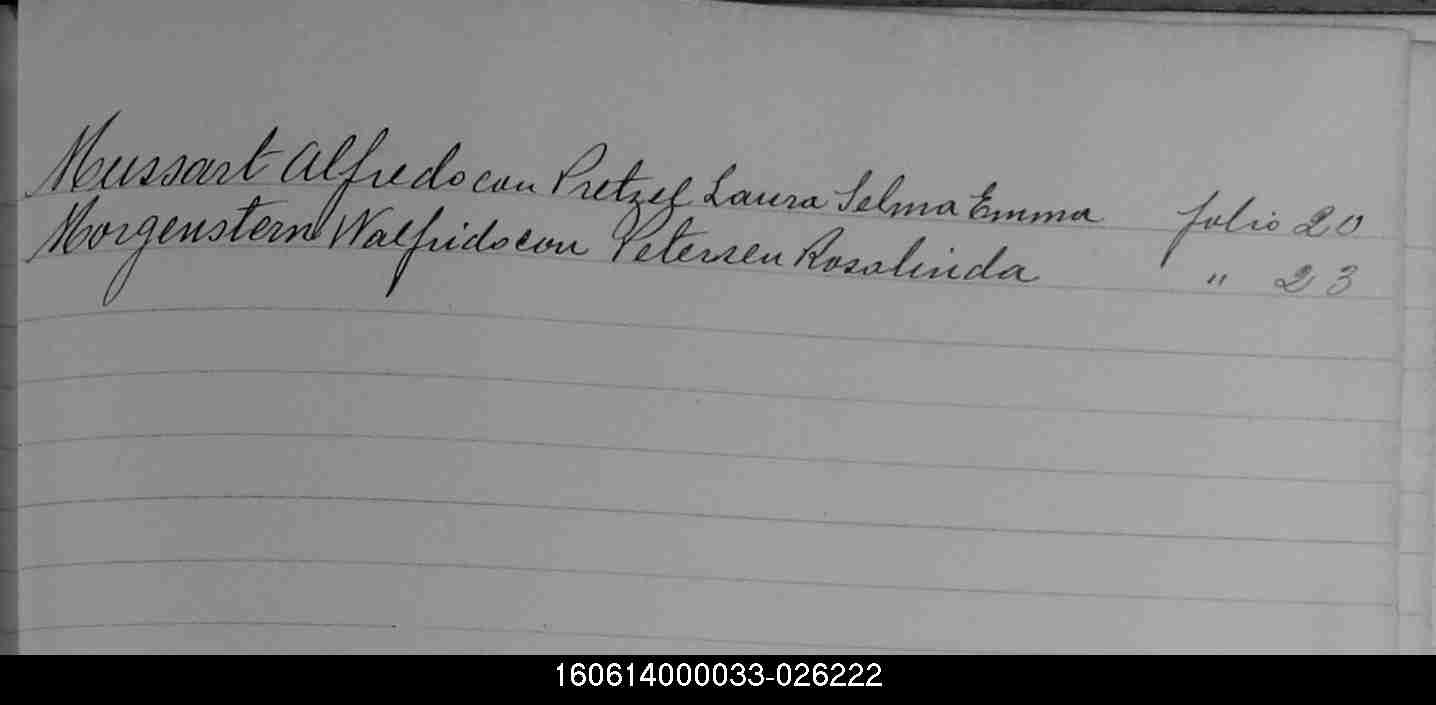 Mussart Alfredo con Pretzel Laura Selma Emma folio 20
Morgenstern Walfrido con Petersen Rosalinda " 23
160614000033-026222